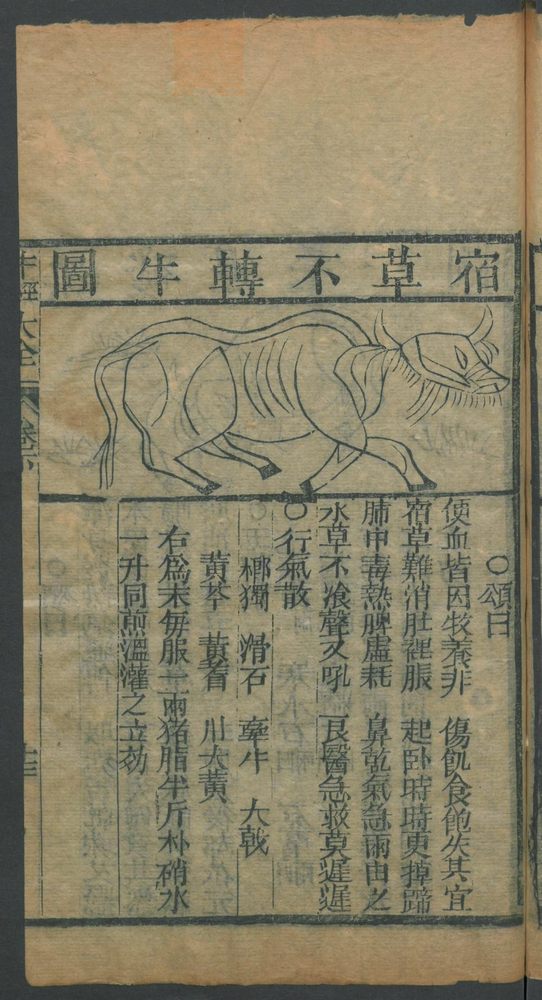 宿草不轉牛圖
○頌曰
使血皆因牧養非　傷飢食飽失其宜
宿草難消肚裡脹　起卧時時更掉蹄
肺中毒熱脾虛耗　鼻乾氣急兩
水草不飡聲又吼　良醫急救莫遲遲
○行氣散
榔獨　滑石　牽牛　大戟
黃芩　黃耆　川大黃
右爲末每服二兩猪脂半斤朴硝水
一升同煎溫灌之立効
牛經大全　卷下